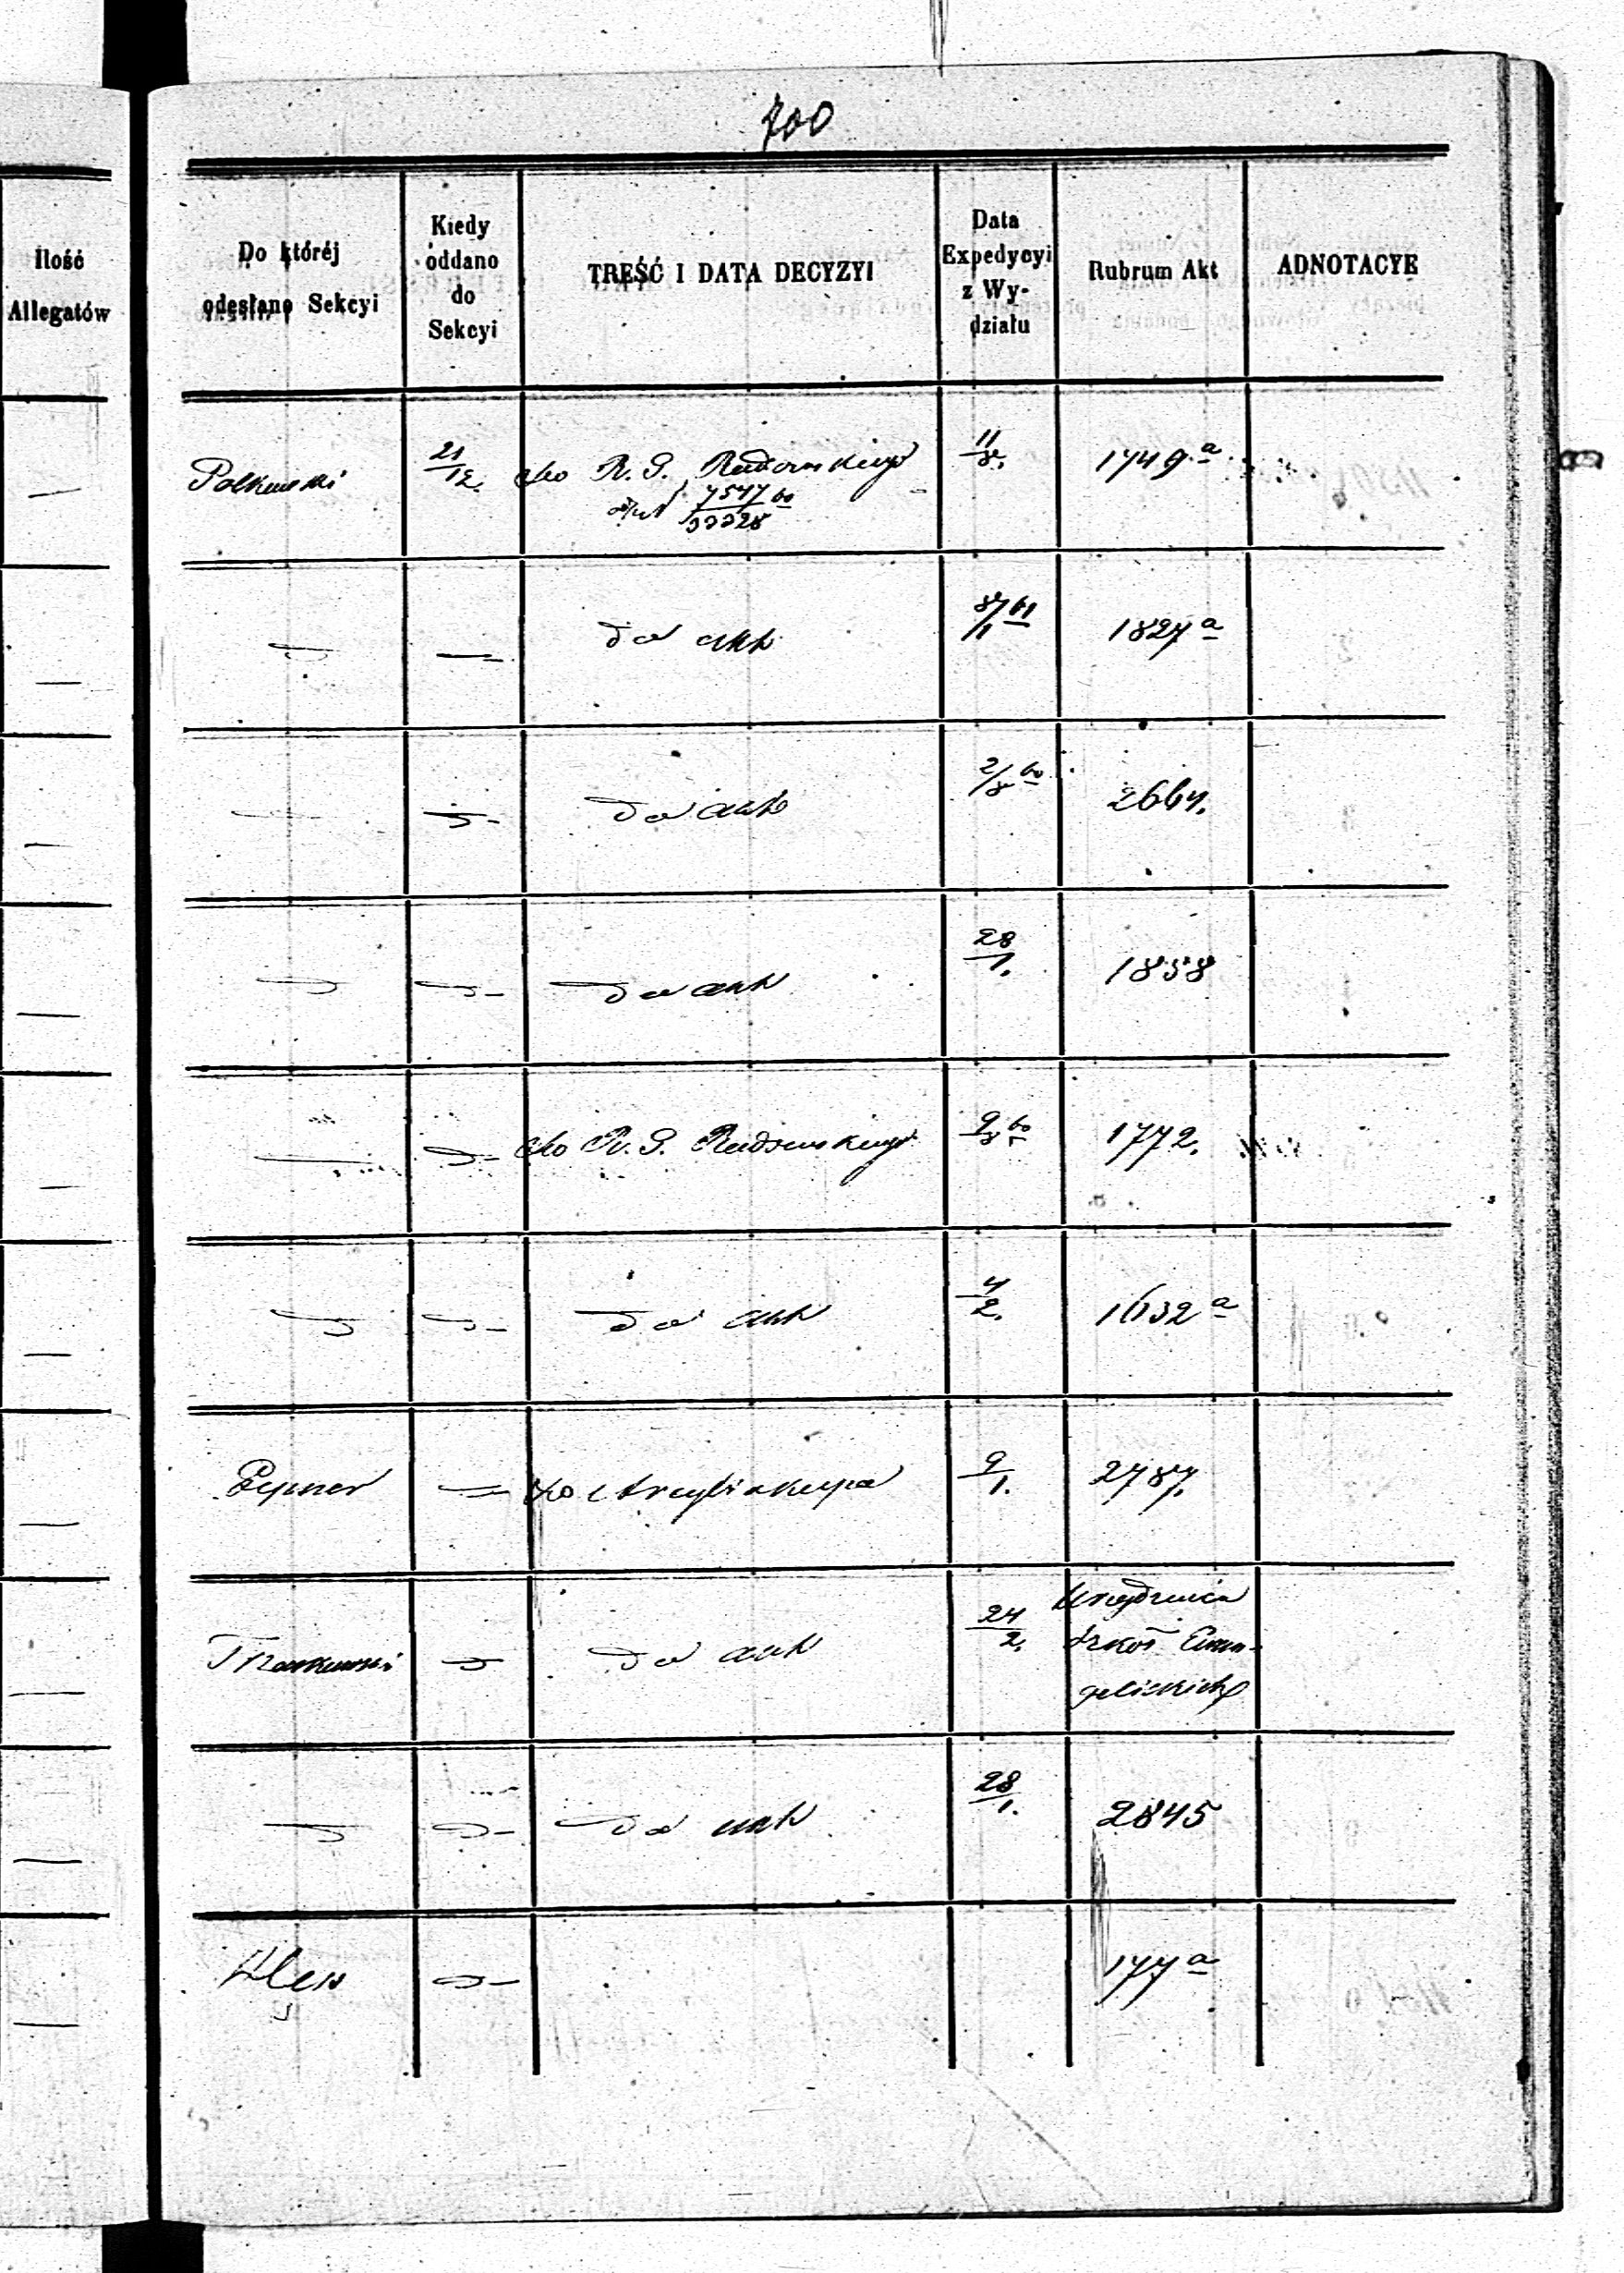 700
Ilość
Allegatów
Do któréj
odesłano Sekcyi
Kiedy
oddano
do
Sekcyi
TREŚĆ I DATA DECYZYI
Data
Expedycyi
z Wy-
działu
Rubrum Akt
ADNOTACYE
Polkowski 21/12. do R. G. Radomskiego 11/8. 1749 a
7547 60
33328
do akt 61 1827 a
do akt 2/8 60 2664.
do akt 28/1. 1858
do R. G. Radomskiego 60 1772.
do akt 4/2. 1632 a
do Arcybiskupa 9/1. 2787.
do akt 24/2. Urządzenia
szkół Ewan-
gelickich
do akt 28/1. 2845
177 a